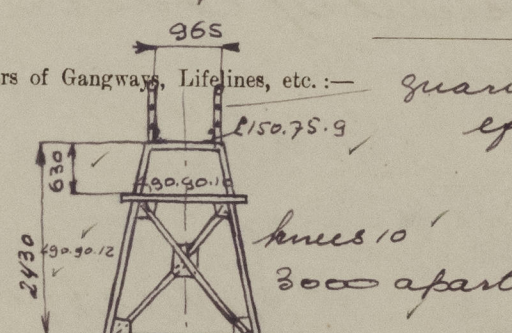 965
rs of Gangways, Lifelines, etc. :—
guar
L150.75.9
ef
630
L90.90.10
2430
L90.90.12
knees 10
3000 apart